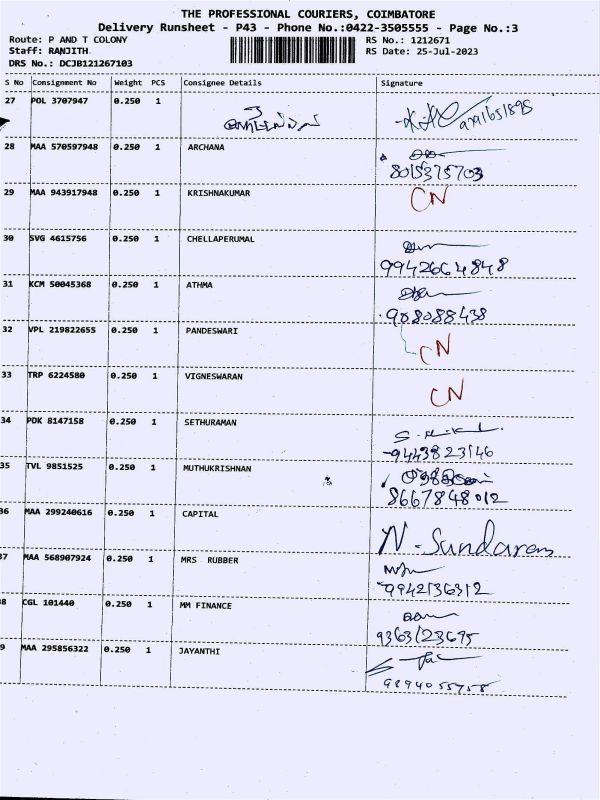 THE PROFESSIONAL COURIERS, COIMBATORE
Delivery Runsheet - P43 - Phone No.:0422-3505555 - Page No.:3
Route: P AND T COLONY RS No.: 1212671
Staff: RANJITH RS Date: 25-Jul-2023
DRS No.: DCJB121267103
S No Consignment No Weight PCS Consignee Details Signature
27 POL 3707947 0.250 1
28 MAA 570597948 0.250 1 ARCHANA
8015375703
29 MAA 943917948 0.250 1 KRISHNAKUMAR CN
30 SVG 4615756 0.250 1 CHELLAPERUMAL
9942664848
31 KCM 50045368 0.250 1 ATHMA
988088438
32 VPL 219822655 0.250 1 PANDESWARI
CN
33 TRP 6224580 0.250 1 VIGNESWARAN
CN
34 PDK 8147158 0.250 1 SETHURAMAN
9443823146
35 TVL 9851525 0.250 1 MUTHUKRISHNAN
8667848012
36 MAA 299240616 0.250 1 CAPITAL
N. Sundaram
37 MAA 568907924 0.250 1 MRS RUBBER
9942136312
38 CGL 101440 0.250 1 MM FINANCE
9363123695
9 MAA 295856322 0.250 1 JAYANTHI
9894055758